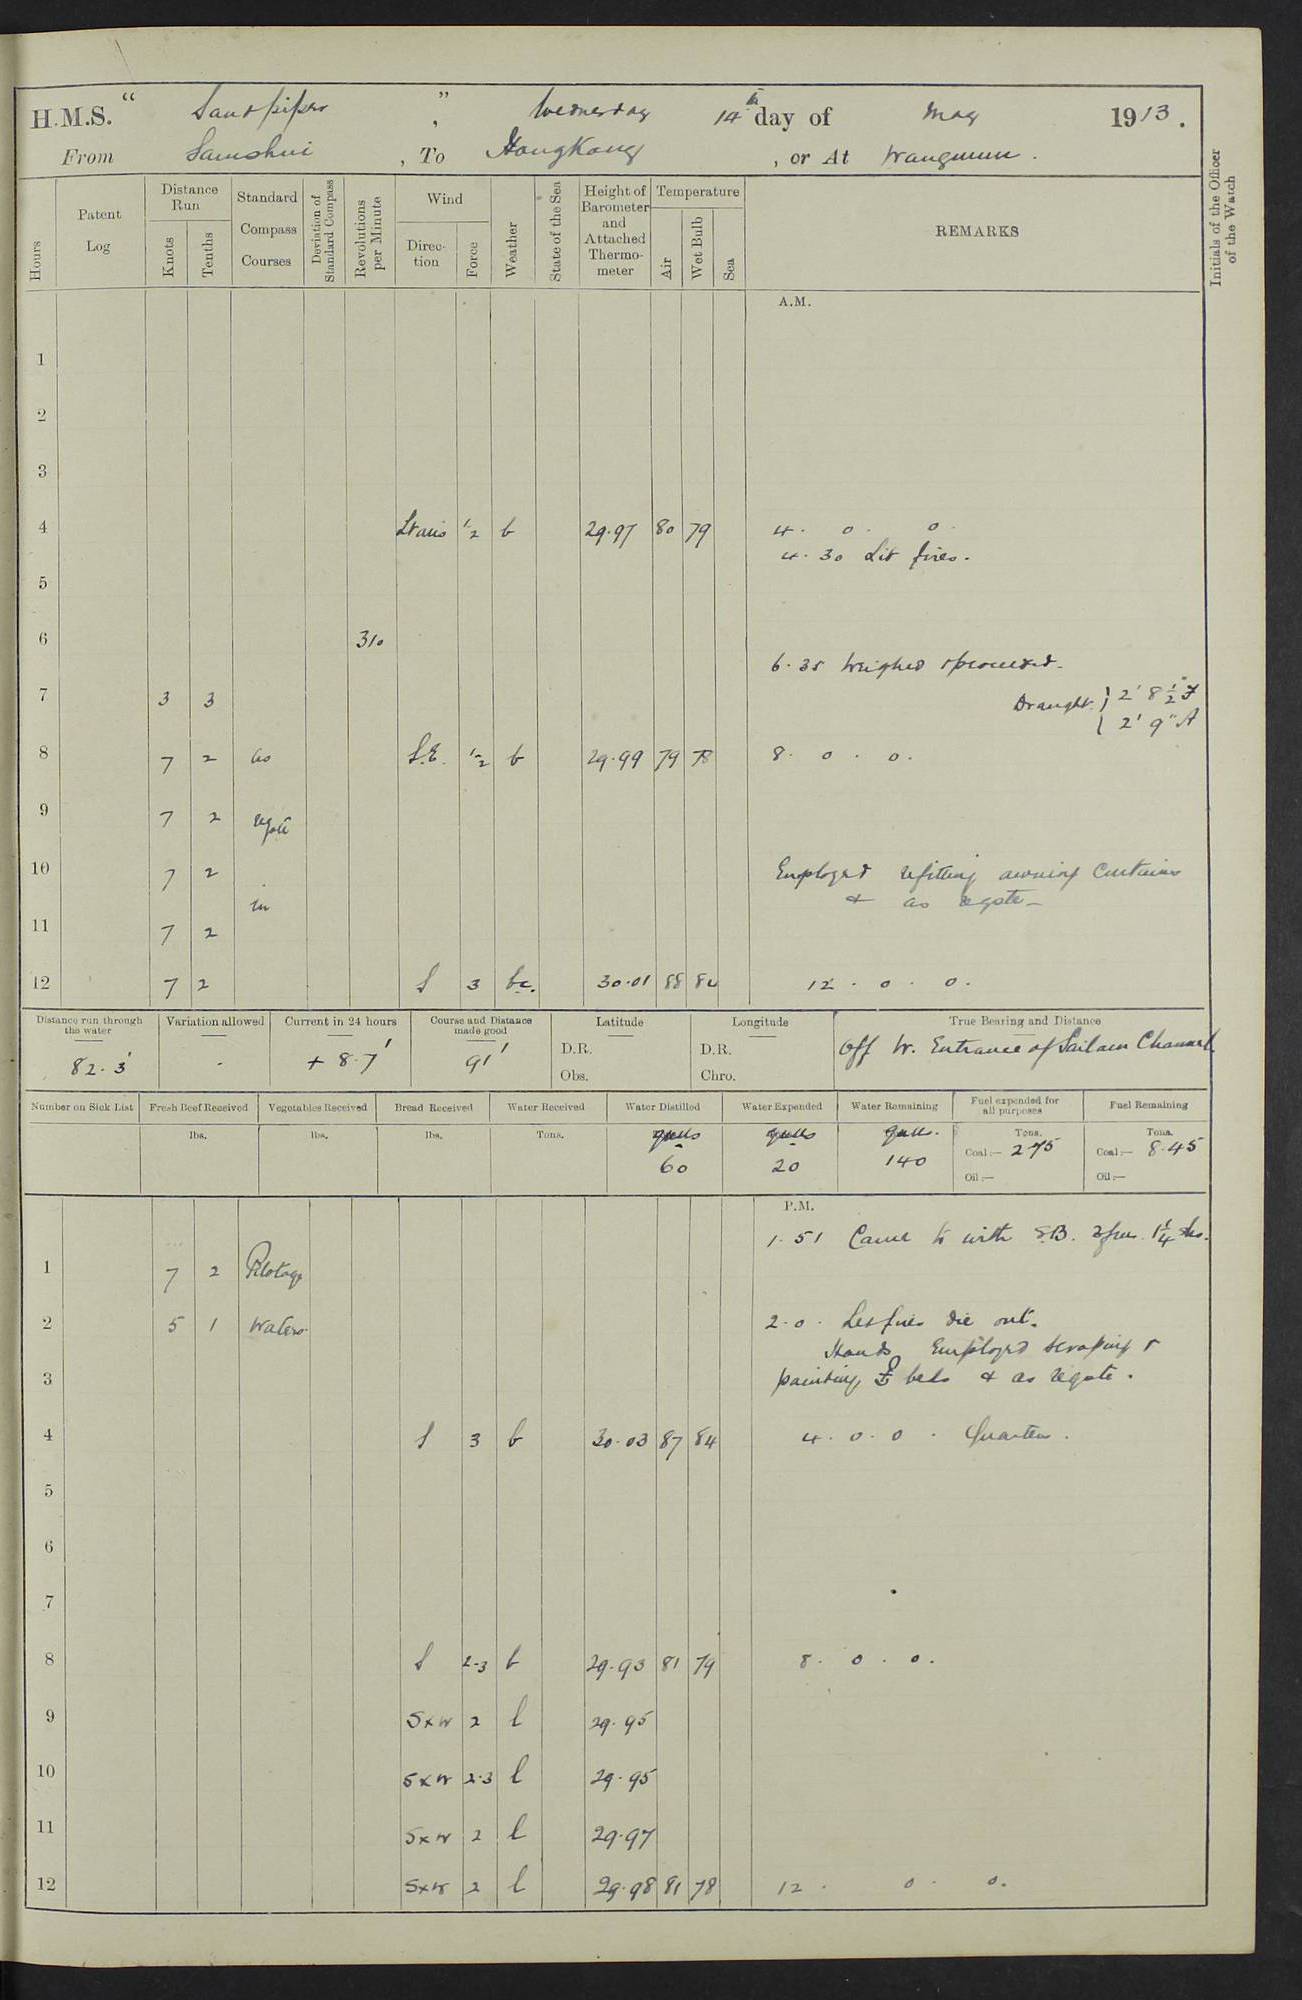 H.M.S. "Sandpiper", Wednesday 14th day of May 1913.
From Samshui, To HongKong, or At Wangmun.
Hours
Patent Log
Distance Run
Knots
Tenths
Standard Compass Courses
Deviation of Standard Compass
Revolutions per Minute
Wind
Direction
Force
Weather
State of the Sea
Height of Barometer and Attached Thermometer
Temperature
Air
Wet Bulb
Sea
REMARKS
Initials of the Officer of the Watch
A.M.
1
2
3
4 Ltairs 1-2 b 29.97 80 79 4. 0. 0.
4.30 Lit fires.
5
6 310
6.35 Weighed & proceeded.
7 3 3 Draught. } 2' 8 1/2" F
{ 2' 9" A
8 7 2 as S.E. 1-2 b 29.99 79 78 8. 0. 0.
9 7 2 reqte
10 7 2 Employed refitting awning Curtains
in & as reqte -
11 7 2
12 7 2 S 3 bc. 30.01 88 84 12. 0. 0.
Distance run through the water
82.3'
Variation allowed
-
Current in 24 hours
+ 8.7'
Course and Distance made good
91'
Latitude
D.R.
Obs.
Longitude
D.R.
Chro.
True Bearing and Distance
Off W. Entrance of Sailam Channel
Number on Sick List
Fresh Beef Received
lbs.
Vegetables Received
lbs.
Bread Received
lbs.
Water Received
Tons.
Water Distilled
galls
60
Water Expended
galls
20
Water Remaining
galls.
140
Fuel expended for all purposes
Tons.
Coal:— 2.75
Oil:—
Fuel Remaining
Tons.
Coal:— 8.45
Oil:—
P.M.
1.51 Came to with S.B. 2 fms. 1 1/4 shs.
1 7 2 Pilotage
2 5 1 Waters. 2.0. Let fires die out.
Hands Employed scraping &
3 painting beds & as reqte.
4 S 3 b 30.03 87 84 4. 0. 0. Quarters.
5
6
7
8 S 2-3 b 29.93 81 79 8. 0. 0.
9 SxW 2 l 29.95
10 SxW 2.3 l 29.95
11 SxW 2 l 29.97
12 SxW 2 l 29.98 81 78 12. 0. 0.